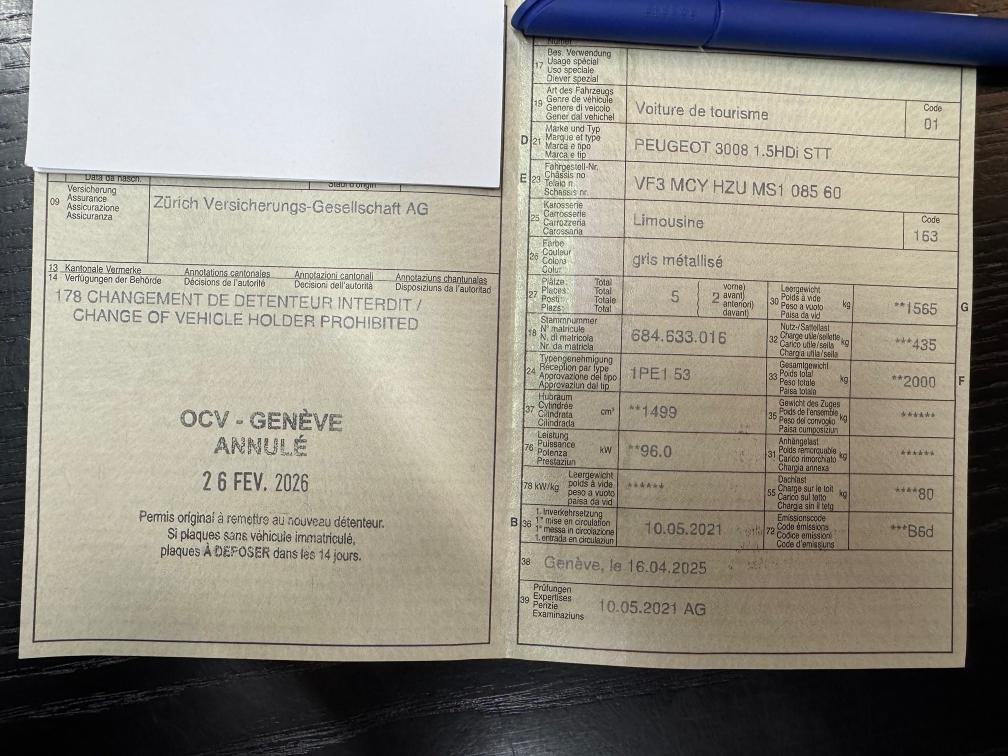 09 Versicherung
Assurance
Assicurazione
Assicuranza
Zürich Versicherungs-Gesellschaft AG
13 Kantonale Vermerke Annotations cantonales Annotazioni cantonali Annotaziuns chantunales
14 Verfügungen der Behörde Décisions de l'autorité Decisioni dell'autorità Disposiziuns da l'autoritad
178 CHANGEMENT DE DETENTEUR INTERDIT /
CHANGE OF VEHICLE HOLDER PROHIBITED
OCV - GENÈVE
ANNULÉ
26 FEV. 2026
Permis original à remettre au nouveau détenteur.
Si plaques sans véhicule immatriculé,
plaques À DÉPOSER dans les 14 jours.
17 Bes. Verwendung
Usage spécial
Uso speciale
Diever spezial
19 Art des Fahrzeugs
Genre de véhicule
Genere di veicolo
Gener dal vehichel
Voiture de tourisme
Code
01
D 21 Marke und Typ
Marque et type
Marca e tipo
Marca e tip
PEUGEOT 3008 1.5HDi STT
E 23 Fahrgestell-Nr.
Châssis no
Telaio n.
Schassis nr.
VF3 MCY HZU MS1 085 60
25 Karosserie
Carrosserie
Carrozzeria
Carossaria
Limousine
Code
163
26 Farbe
Couleur
Colore
Colur
gris métallisé
27 Plätze: Total
Places: Total
Posti: Totale
Plazs: Total
5
2 vorne)
avant)
anteriori)
davant)
30 Leergewicht
Poids à vide
Peso a vuoto
Paisa da vid
kg
**1565
G
18 Stammnummer
N° matricule
N. di matricola
Nr. da matricla
684.633.016
32 Nutz-/Sattellast
Charge utile/sellette
Carico utile/sella
Chargia utila/sella
kg
***435
24 Typengenehmigung
Réception par type
Approvazione del tipo
Approvaziun dal tip
1PE1 53
33 Gesamtgewicht
Poids total
Peso totale
Paisa totala
kg
**2000
F
37 Hubraum
Cylindrée
Cilindrata
Cilindrada
cm³
**1499
35 Gewicht des Zuges
Poids de l'ensemble
Peso del convoglio
Paisa cumposiziun
kg
******
76 Leistung
Puissance
Potenza
Prestaziun
kW
**96.0
31 Anhängelast
Poids remorquable
Carico rimorchiato
Chargia annexa
kg
******
78 kW/kg
Leergewicht
poids à vide
peso a vuoto
paisa da vid
******
55 Dachlast
Charge sur le toit
Carico sul tetto
Chargia sin il tetg
kg
****80
B 36 1. Inverkehrsetzung
1re mise en circulation
1a messa in circolazione
1. entrada en circulaziun
10.05.2021
72 Emissionscode
Code émissions
Codice emissioni
Code d'emissiuns
***B6d
38 Genève, le 16.04.2025
39 Prüfungen
Expertises
Perizie
Examinaziuns
10.05.2021 AG